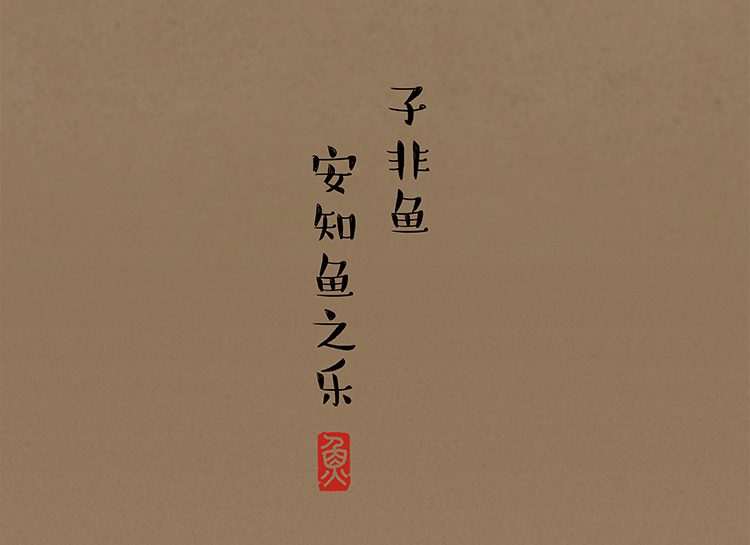 子非鱼
安知鱼之乐
魚